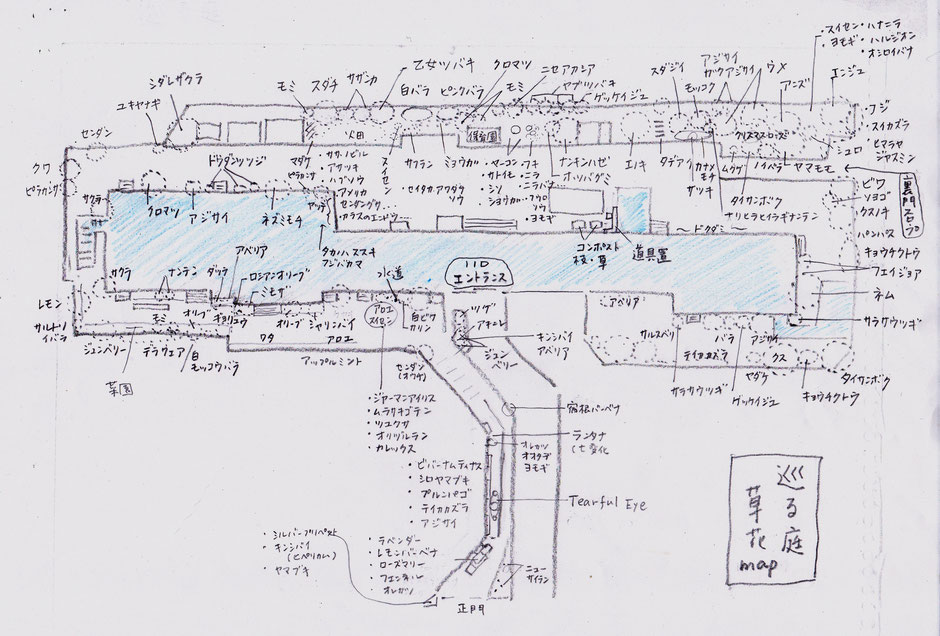 ・スイセン・ハナニラ
・ヨモギ・ハルジオン
・オシロイバナ
シダレザクラ
ユキヤナギ
センダン
クワ
ピラカンサ
モミ
スダチ
サザンカ
乙女ツバキ
白バラ
ピンクバラ
クロマツ
モミ
ニセアカシア
ヤブツバキ
ゲッケイジュ
スダジイ
モッコク
アジサイ
ガクアジサイ
ウメ
アンズ
エンジュ
フジ
・スイカズラ
・ヒマラヤ
ジャスミン
シュロ
クリスマスローズ
火田
保育園
ドウダンツツジ
マダケ
ピラカンサ
・ササノビル
・アサツキ
・ハブソウ
・アメリカ
センダングサ
・カラスのエンドウ
スイセン
サフラン
ミョウガ
・セイタカアワダチ
ソウ
・マーコン
・サトイモ
・シソ
・ショウガ
・フキ
・ニラ
・ニラバナ
・フクロ
ソウ
・ヨモギ
ナンキンハゼ
オッパグミ
エノキ
タデアイ
・カナメ
モチ
・サツキ
ムクゲ
ノイバラ
ヤマモモ
タイサンボク
ナリヒラヒイラギナンテン
裏門スロープ
ビワ
ソヨゴ
クスノキ
パンパス
キョウチクトウ
フェイジョア
ネム
サラサウツギ
サクラ
クロマツ
アジサイ
ネズミモチ
ヤツデ
タカノハススキ
フジバカマ
コンポスト
枝・草
道具置
〜ドクダミ〜
110
エントランス
アベリア
サクラ
ナンテン
ダッチ
ロシアンオリーブ
ミモザ
つく道
アロエ
スイセン
白ビワ
カリン
ツゲ
アキニレ
キンシバイ
アベリア
ジュン
ベリー
アベリア
サルスベリ
バラ
アジサイ
テイカカズラ
クス
ヤダケ
サラサウツギ
ゲッケイジュ
キョウチクトウ
タイサンボク
レモン
サルトリ
イバラ
モミ
オリーブ
ギョリュウ
オリーブ
シャリンバイ
ワタ
アロエ
アップルミント
ジューンベリー
デラウェア
白
モッコウバラ
菜園
センダン
(オウチ)
・ジャーマンアイリス
・ムラサキゴテン
・ツユクサ
・オリヅルラン
・カレックス
宿根バーベナ
ランタナ
(七変化
オレガノ
オオタデ
ヨモギ
・ビバーナムティナス
・シロヤマブキ
・プルンバゴ
・テイカカズラ
・アジサイ
Tearful Eye
・シルバープリペット
・キンシバイ
(ヒペリカム)
・ヤマブキ
・ラベンダー
・レモンバーベナ
・ローズマリー
・フェンネル
・オレガノ
ニュー
サイラン
正門
巡る庭
草花
map